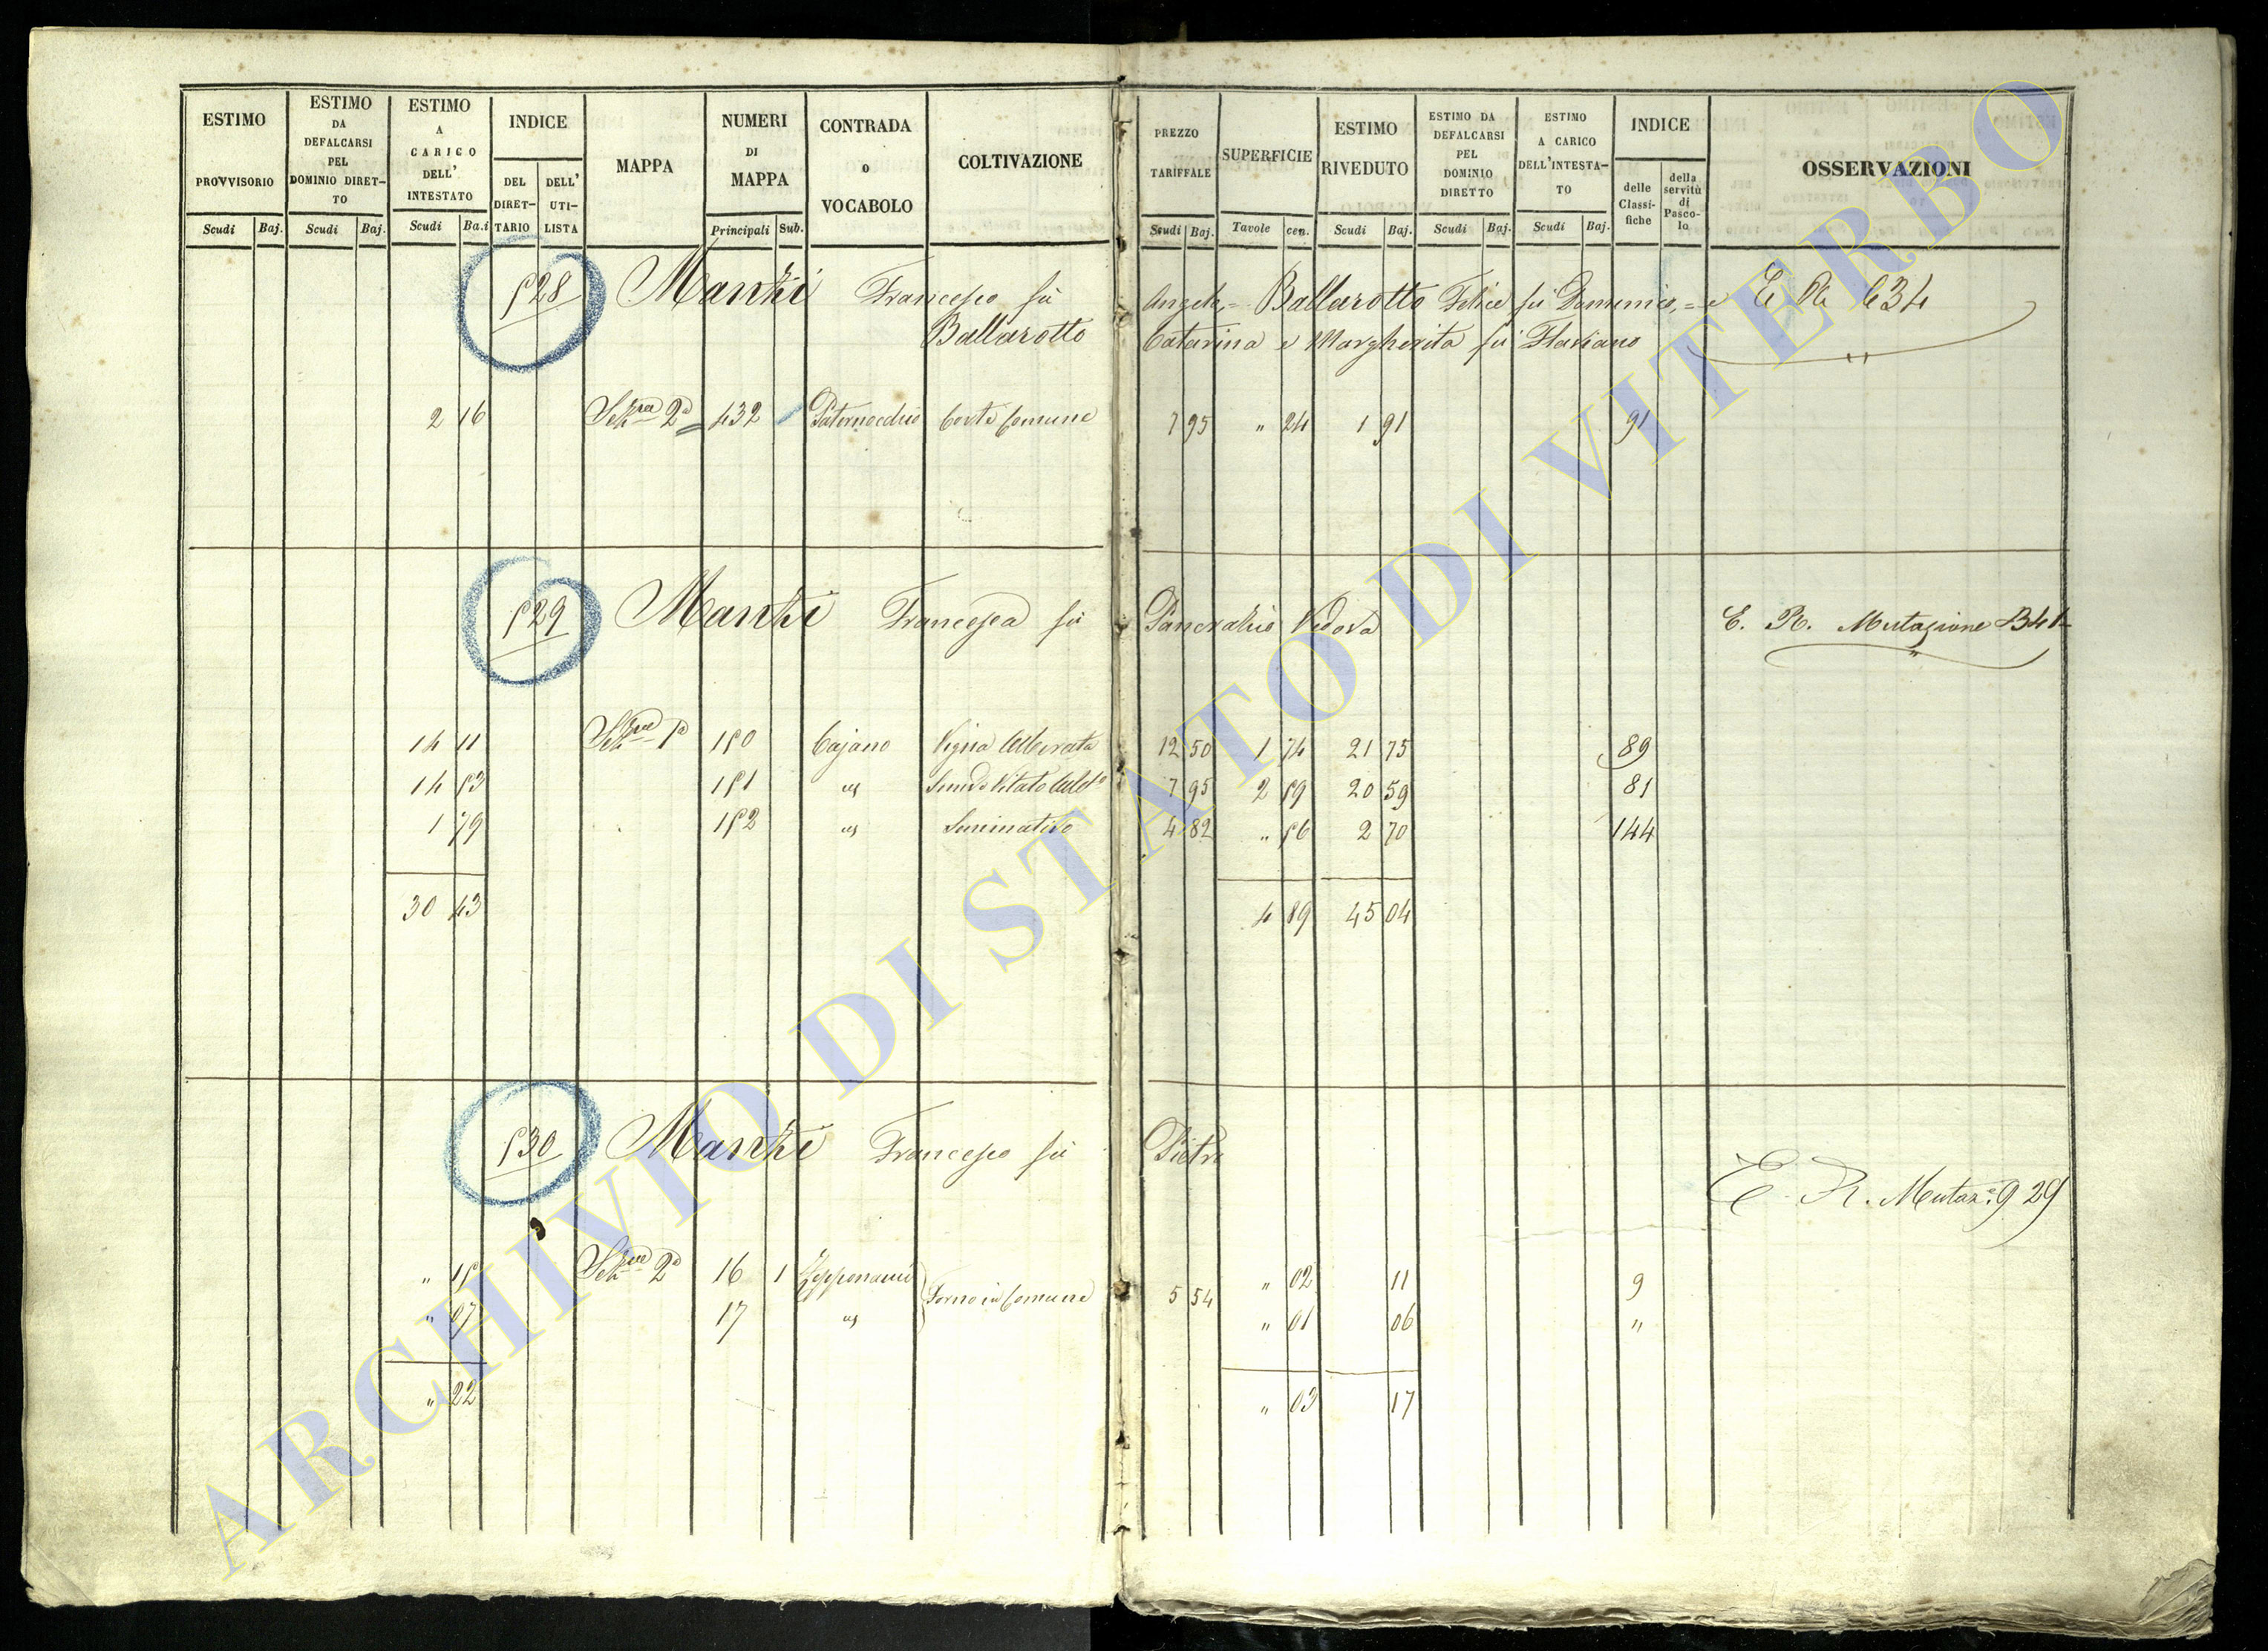 ESTIMO PROVVISORIO
Scudi Baj.
ESTIMO DA DEFALCARSI PEL DOMINIO DIRET-TO
Scudi Baj.
ESTIMO A CARICO DELL' INTESTATO
Scudi Ba.i
INDICE
DEL DIRET-TARIO
DELL' UTI-LISTA
MAPPA
NUMERI DI MAPPA
Principali Sub.
CONTRADA o VOCABOLO
COLTIVAZIONE
PREZZO TARIFFALE
Scudi Baj.
SUPERFICIE
Tavole cen.
ESTIMO RIVEDUTO
Scudi Baj.
ESTIMO DA DEFALCARSI PEL DOMINIO DIRETTO
Scudi Baj.
ESTIMO A CARICO DELL'INTESTA-TO
Scudi Baj.
INDICE
delle Classi-fiche
della servitù di Pasco-lo
OSSERVAZIONI
528 Manzi Francesco fù Angelo = Ballarotto Felice fù Domenico, = e E R 634
Ballarotto Catarina e Margherita fù Flaviano
2 16 Sez.ne 2a 432 Paternocchio Corte Comune 7 95 " 24 1 91 91
529 Manzi Francesca fù Pancrazio Vedova E. R. Mutazione
14 11 Sez.ne 1a 150 Cajano Vigna Alberata 12 50 1 74 21 75 89
14 53 151 Vitato 7 95 2 59 20 59 81
1 79 152 Seminativo 4 82 " 56 2 70 144
30 43 4 89 45 04
530 Manzi Francesco fù Pietro
E. R. Mutaz.e 929
" 15 Sez.ne 2a 16 1 Zepponami Forno in Comune 5 54 " 02 11 9
" 07 17 " 01 06 "
" 22 " 03 17
ARCHIVIO DI STATO DI VITERBO